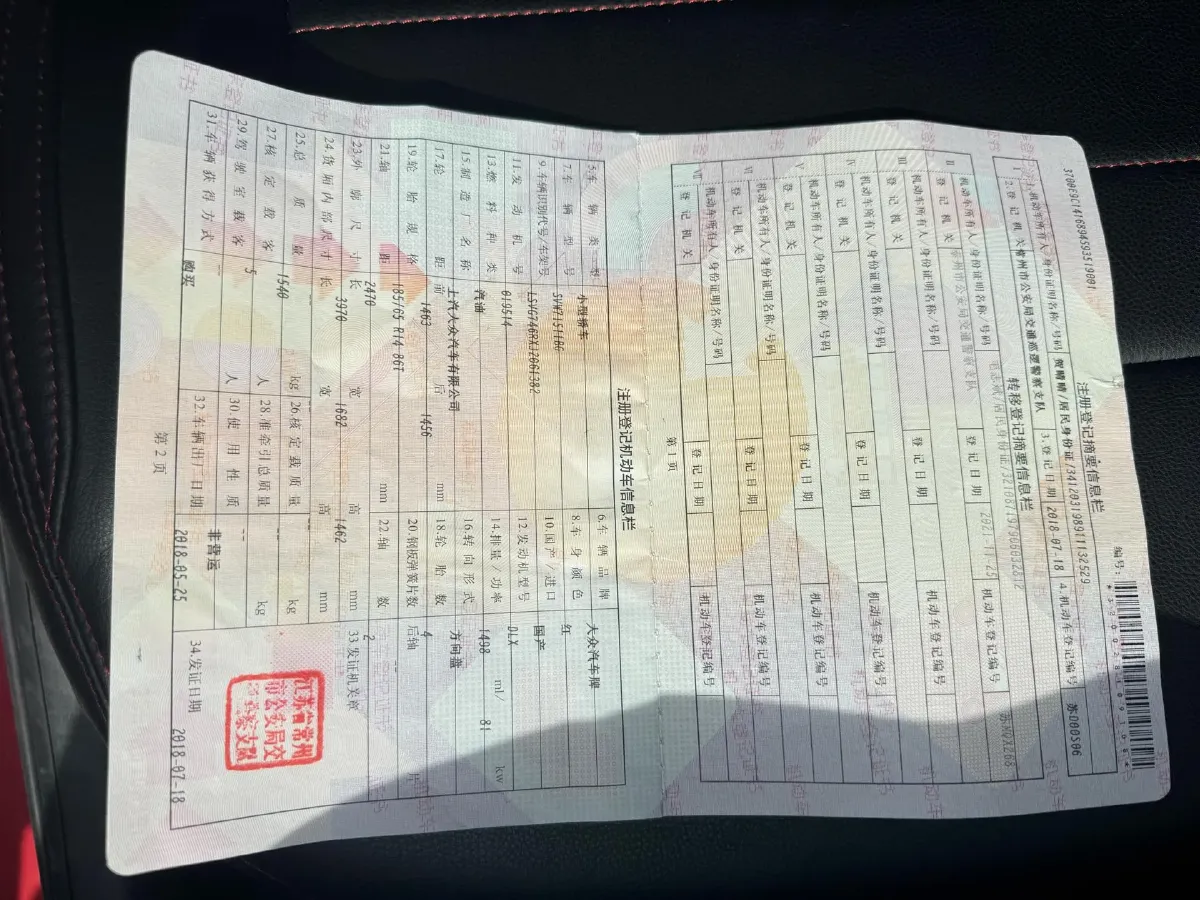 3700E9C14168945935190​01
编号:
注册登记摘要信息栏
1.机动车所有人/身份证明名称/号码 贺晴晴/居民身份证/341203198911132529
2.登记机关 常州市公安局交通巡逻警察支队 3.登记日期 2018-07-18 4.机动车登记编号 苏D00S06
转移登记摘要信息栏
Ⅱ 机动车所有人/身份证明名称/号码
登记机关 常州市公安局交通警察支队 登记日期 2021-11-25 机动车登记编号
Ⅲ 机动车所有人/身份证明名称/号码
登记机关 登记日期 机动车登记编号
Ⅳ 机动车所有人/身份证明名称/号码
登记机关 登记日期 机动车登记编号
Ⅴ 机动车所有人/身份证明名称/号码
登记机关 登记日期 机动车登记编号
Ⅵ 机动车所有人/身份证明名称/号码
登记机关 登记日期 机动车登记编号
Ⅶ 机动车所有人/身份证明名称/号码
登记机关 登记日期 机动车登记编号
第1页
注册登记机动车信息栏
5.车辆类型 小型轿车 6.车辆品牌 大众汽车牌
7.车辆型号 8.车身颜色 红
9.车辆识别代号/车架号 LSVG746RXJ2061382 10.国产/进口 国产
11.发动机号 019514 12.发动机型号 DLX
13.燃料种类 汽油 14.排量/功率 1498 ml/ 81 kw
15.制造厂名称 上汽大众汽车有限公司 16.转向形式 方向盘
17.轮距 前 1463 后 1456 mm 18.轮胎数 4
19.轮胎规格 185/65 R14 86T 20.钢板弹簧片数 后轴 -- 片
21.轴距 2470 mm 22.轴数 2
23.外廓尺寸 长 3970 宽 1682 高 1462 mm 33.发证机关章
24.货厢内部尺寸 长 -- 宽 -- 高 -- mm
25.总质量 1540 kg 26.核定载质量 -- kg
27.核定载客 5 人 28.准牵引总质量 -- kg
29.驾驶室载客 -- 人 30.使用性质 非营运
31.车辆获得方式 购买 32.车辆出厂日期 2018-05-25 34.发证日期 2018-07-18
江苏省常州
市公安局交
通警察支队
第2页